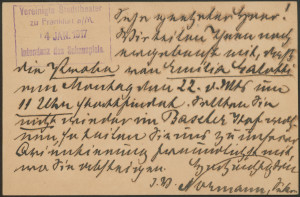 Vereinigte Stadttheater
zu Frankfurt a/M.
4 JAN. 1917
Intendanz des Schauspiels.
Sehr geehrter Herr!
Wir teilen Ihnen noch
ergebenst mit, dass
die Probe von Emilia Galotti
am Montag den 22. d. Mts um
11 Uhr stattfindet. Sollten Sie
nicht wieder im Baseler Hof wohnen
teilen Sie uns zu unserer
Orientierung freundlichst mit,
wo Sie absteigen.
Hochachtungsvoll
I. V. Normann,